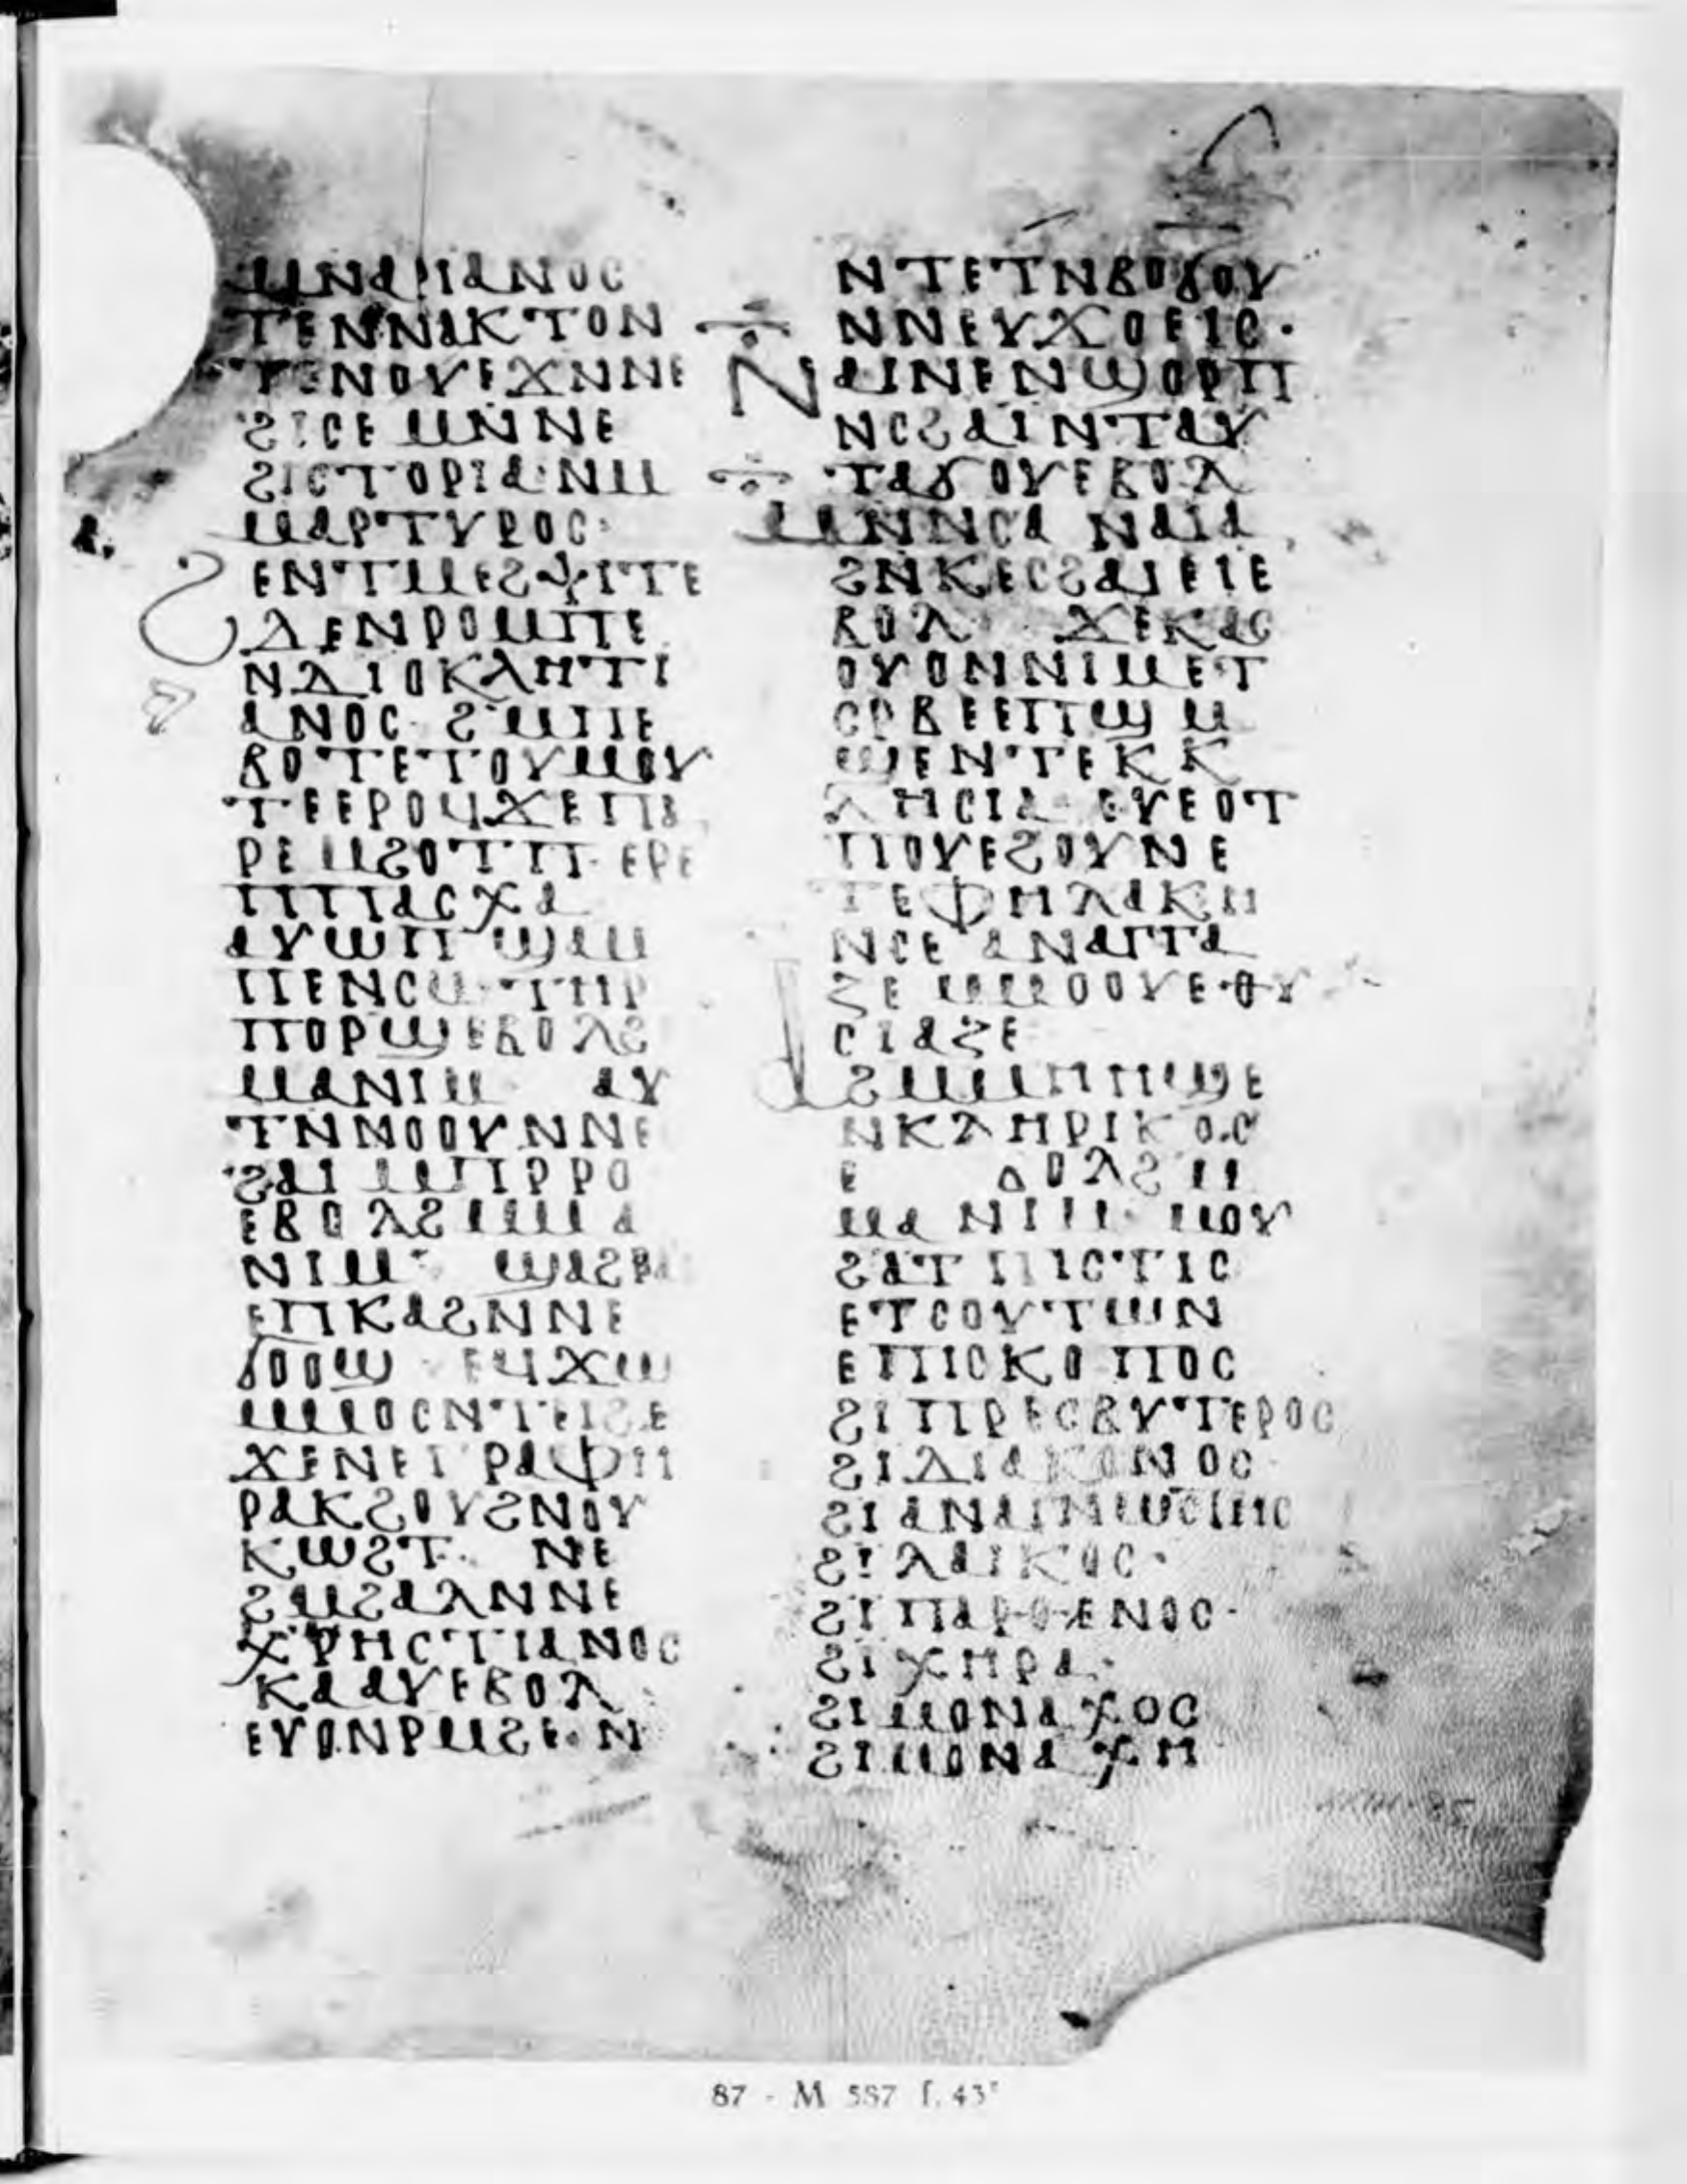 ⲙⲛⲁⲣⲓⲁⲛⲟⲥ
ⲧⲉⲛⲛⲁⲕⲧⲟⲛ
ⲧⲉⲛⲟⲩⲉϫⲛⲛⲉ
ϩⲓⲥⲉ ⲙⲛⲛⲉ
ϩⲓⲥⲧⲟⲣⲓⲁ ⲛⲙ
ⲙⲁⲣⲧⲩⲣⲟⲥ·
ϩⲉⲛⲧⲙⲉϩⲯⲓⲧⲉ
ⲇⲉⲛⲣⲟⲙⲡⲉ
ⲛⲇⲓⲟⲕⲗⲏⲧⲓ
ⲁⲛⲟⲥ· ϩⲙⲡⲉ
ⲃⲟⲧⲉⲧⲟⲩⲙⲟⲩ
ⲧⲉⲉⲣⲟϥϫⲉⲡⲁ
ⲣⲉⲙϩⲟⲧⲡ· ⲉⲣⲉ
ⲡⲡⲁⲥⲭⲁ
ⲁⲩⲱⲡϣⲁⲙ
ⲡⲉⲛⲥⲱⲧⲏⲣ
ⲡⲟⲣϣⲉⲃⲟⲗϩ
ⲙⲁⲛⲓⲙ ⲁⲩ
ⲧⲛⲛⲟⲟⲩⲛⲛⲉ
ϩⲁⲓ ⲙⲡⲣⲣⲟ
ⲉⲃⲟⲗϩⲙⲙⲁ
ⲛⲓⲙ· ϣⲁϩⲣⲁ
ⲉⲡⲕⲁϩⲛⲛⲉ
ϭⲟⲟϣ· ⲉϥϫⲱ
ⲙⲙⲟⲥⲛⲧⲉⲓϩⲉ
ϫⲉⲛⲉⲅⲣⲁⲫⲏ
ⲣⲁⲕϩⲟⲩϩⲛⲟⲩ
ⲕⲱϩⲧ· ⲛⲉ
ϩⲙϩⲁⲗⲛⲛⲉ
ⲭⲣⲏⲥⲧⲓⲁⲛⲟⲥ
ⲕⲁⲁⲩⲉⲃⲟⲗ
ⲉⲩⲟⲛⲣⲙϩⲉ·ⲛ
ⲛⲧⲉⲧⲛⲃⲟϭⲟⲩ
ⲛⲛⲉⲩϫⲟⲉⲓⲥ·
ⲛⲁⲓⲛⲉⲛϣⲟⲣⲡ
ⲛⲥϩⲁⲓⲛⲧⲁⲩ
ⲧⲁϭⲟⲩⲉⲃⲟⲗ
ⲙⲛⲛⲥⲁ ⲛⲁⲓⲁ
ϩⲛⲕⲉⲥϩⲁⲓⲉⲓⲉ
ⲃⲟⲗ ϫⲉⲕⲁⲥ
ⲟⲩⲟⲛⲛⲓⲙⲉⲧ
ⲥⲣⲃⲉⲉⲡϣⲙ
ϣⲉⲛⲧⲉⲕⲕ
ⲗⲏⲥⲓⲁ ⲉⲩⲉⲟⲧ
ⲡⲟⲩⲉϩⲟⲩⲛⲉ
ⲧⲉⲫⲏⲗⲁⲕⲏ
ⲛⲥⲉ ⲁⲛⲁⲅⲅⲁ
ⲍⲉ ⲙⲙⲟⲟⲩⲉⲑⲩ
ⲥⲓⲁⲍⲉ
ⲁϩⲙⲙⲏⲏϣⲉ
ⲛⲕⲗⲏⲣⲓⲕⲟⲥ
ⲙⲁ ⲛⲓⲙ· ⲙⲟⲩ
ϩⲁⲧⲡⲓⲥⲧⲓⲥ
ⲉⲧⲥⲟⲩⲧⲱⲛ
ⲉⲡⲓⲥⲕⲟⲡⲟⲥ
ϩⲓⲡⲣⲉⲥⲃⲩⲧⲉⲣⲟⲥ
ϩⲓⲇⲓⲁⲕⲟⲛⲟⲥ
ϩⲓⲁⲛⲁⲅⲛⲱⲥⲧⲏⲥ
ϩⲓⲗⲁⲓⲕⲟⲥ·
ϩⲓⲡⲁⲣⲑⲉⲛⲟⲥ·
ϩⲓⲭⲏⲣⲁ·
ϩⲓⲙⲟⲛⲁⲭⲟⲥ
ϩⲓⲙⲟⲛⲁⲭⲏ
87 - M 587 f. 43ʳ